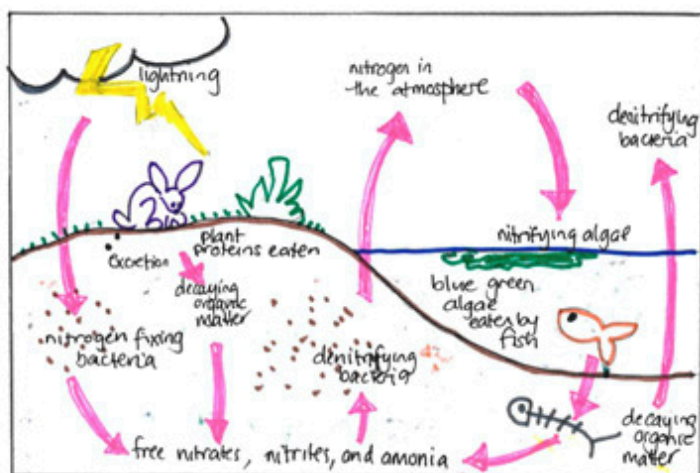 lightning
nitrogen in
the atmosphere
denitrifying
bacteria
plant
proteins eaten
nitrifying algae
excretion
decaying
organic
matter
blue green
algae
eaten by
fish
nitrogen fixing
bacteria
denitrifying
bacteria
decaying
organic
matter
free nitrates, nitrites, and amonia